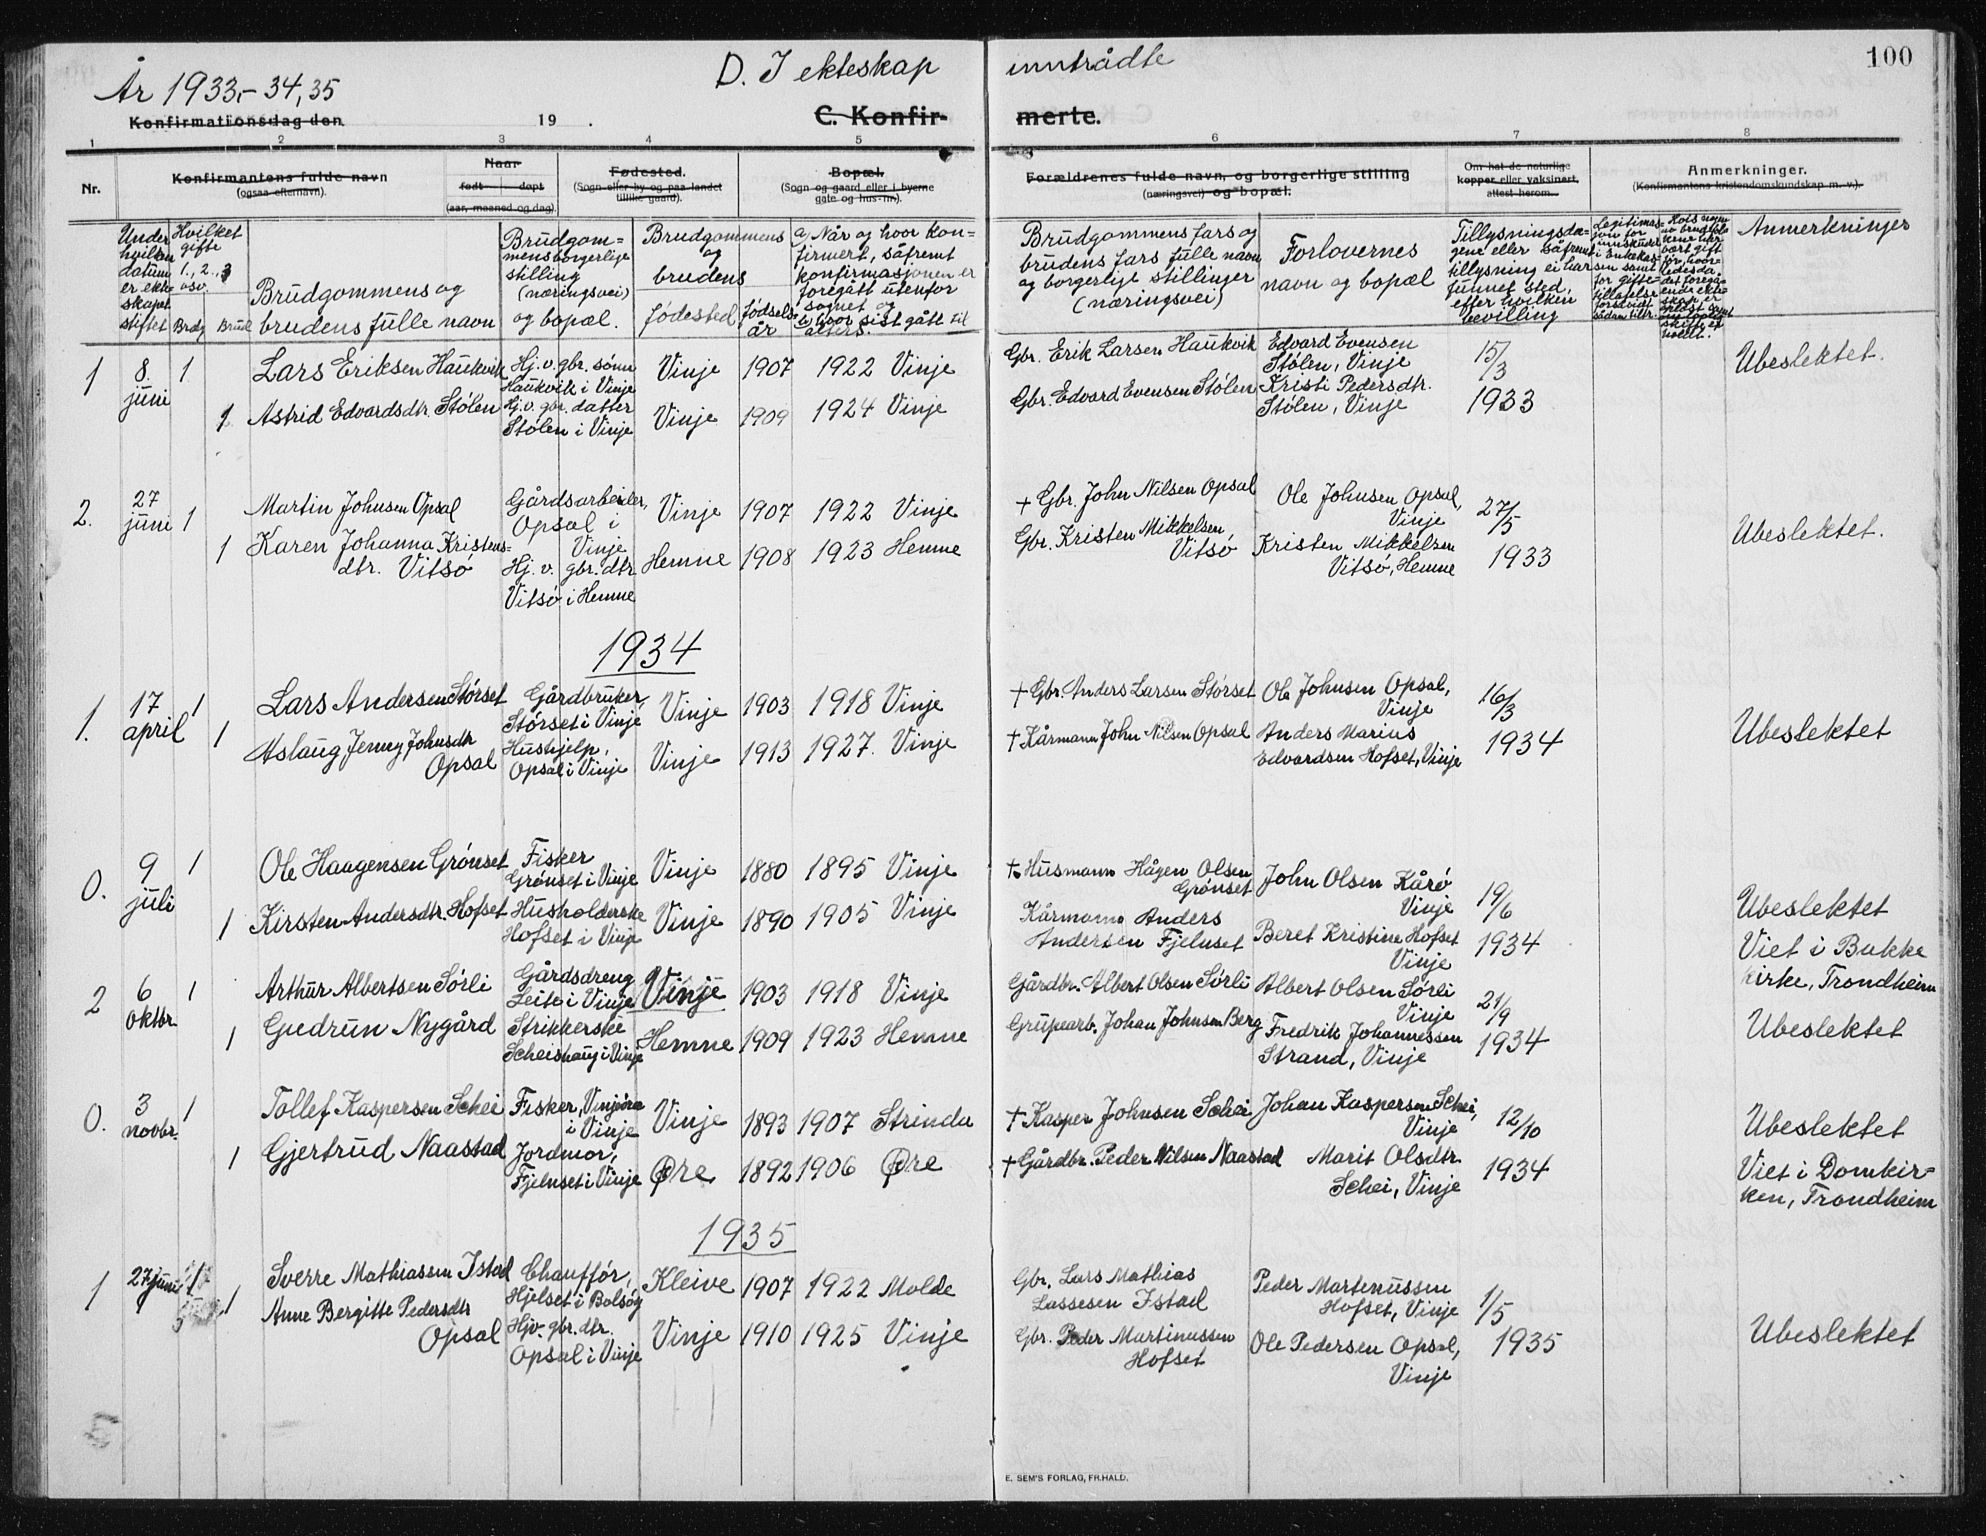 100
År 1933,- 34, 35
D. I ekteskap inntrådte
Konfirmationsdag den 19 .
C. Konfirmerte.
1 2 3 4 5 6 7 8
Nr.
Konfirmantens fulde navn
(ogsaa efternavn).
Naar
født døpt
(aar, maaned og dag).
Fødested.
(Sogn eller by og paa landet
tillike gaard).
Bopæl.
(Sogn og gaard eller i byerne
gate og hus-nr.).
Forældrenes fulde navn, og borgerlige stilling
(næringsvei) og bopæl.
Om hat de naturlige
kopper eller vaksinert,
attest herom.
Anmerkninger.
(Konfirmantens kristendomskundskap m. v.).
Under
hvilken
datum
er ekte-
skapet
stiftet
Hvilket
gifte
1., 2., 3
osv.
Brdg Brud
Brudgommens og
brudens fulle navn
Brudgom-
mens borgerlige
stilling
(næringsvei)
og bopæl.
Brudgommens
og
brudens
fødested fødsels-
år
a) Når og hvor kon-
firmert, såfremt
konfirmasjonen er
foregått utenfor
sognet og
b) hvor sist gått til
alters.
Brudgommens fars og
brudens fars fulle navn
og borgerlige stillinger
(næringsvei)
Forlovernes
navn og bopæl
Tillysningsda-
gene eller såfremt
tillysning ei har
funnet sted,
efter hvilken
bevilling
Anmerkninger
1 8. juni 1
Lars Eriksen Haukvik
Hj. v. gbr. sønn
Haukvik i Vinje
Vinje 1907 1922 Vinje
Gbr. Erik Larsen Haukvik
Edvard Evensen
Stølen, Vinje
15/3
Ubeslektet.
1 Astrid Edvardsdtr. Stølen
Hj. v. gbr. datter
Stølen i Vinje
Vinje 1909 1924 Vinje
Gbr. Edvard Evensen Stølen
Kristi Pedersdtr.
Stølen, Vinje
1933
2. 27 juni 1
Martin Johnsen Opsal
Gårdsarbeider,
Opsal i
Vinje
Vinje 1907 1922 Vinje
+ Gbr. John Nilsen Opsal
Ole Johnsen Opsal,
Vinje
27/5
Ubeslektet.
1 Karen Johanna Kristens-
dtr. Vitsø
Hj. v. gbr. dtr
Vitsø i Hemne
Hemne 1908 1923 Hemne
Gbr. Kristen Mikkelsen,
Vitsø
Kristen Mikkelsen
Vitsø, Hemne
1933
1934
1. 17 april 1
Lars Andersen Størset
Gårdbruker,
Størset i Vinje
Vinje 1903 1918 Vinje
+ Gbr. Anders Larsen Størset
Ole Johnsen Opsal,
Vinje
16/3
Ubeslektet
1 Aslaug Jenny Johnsdtr
Opsal
Hushjelp,
Opsal i Vinje
Vinje 1913 1927. Vinje
+ Kårmann John Nilsen Opsal
Anders Marius
Edvardsen Hofset, Vinje
1934
0. 9 juli 1
Ole Haagensen Grønset
Fisker
Grønset i Vinje
Vinje 1880 1895 Vinje
+ Husmann Hågen Olsen
Grønset
John Olsen Kårø
Vinje
19/6
Ubeslektet
1 Kirsten Andersdtr. Hofset
Husholderske
Hofset i Vinje
Vinje 1890 1905 Vinje
Kårmann Anders
Andersen Fjelnset
Beret Kristine Hofset
Vinje
1934
Viet i Bakke
kirke, Trondheim
2 6 oktbr. 1
Arthur Albertsen Sørli
Gårdsdreng
Leite i Vinje
Vinje 1903 1918 Vinje
Gårdbr. Albert Olsen Sørli
Albert Olsen Sørli
Vinje
21/9
Ubeslektet
1 Gudrun Nygård
Strikkerske
Scheishaug i Vinje
Hemne 1909 1923 Hemne
Grupearb. Johan Johnsen Berg
Fredrik Johannessen
Strand, Vinje
1934
0. 3 novbr. 1
Tollef Kaspersen Schei
Fisker, Vinjøra
i Vinje
Vinje 1893 1907 Strinda
+ Kasper Johnsen Schei
Johan Kaspersen Schei,
Vinje
12/10
Ubeslektet
1 Gjertrud Naastad
Jordmor,
Fjelnset i Vinje
Øre 1892 1906 Øre
+ Gårdbr. Peder Nilsen Naastad
Marit Olsdtr.
Schei, Vinje
1934
Viet i Domkir-
ken, Trondheim
1935
1 27 juni 1
Sverre Mathiassen Istad
Chauffør,
Hjelset i Bolsøy
Kleive 1907 1922 Molde
Gbr. Lars Mathias
Lassesen Istad
Peder Martenussen
Hofset, Vinje
1/5
Ubeslektet
1 Anne Bergitte Pedersdtr
Opsal
Hjv. gbr. dtr.
Opsal i Vinje
Vinje 1910 1925 Vinje
Gbr. Peder Martinussen
Hofset
Ole Pedersen Opsal,
Vinje
1935
E. SEM'S FORLAG, FR.HALD.